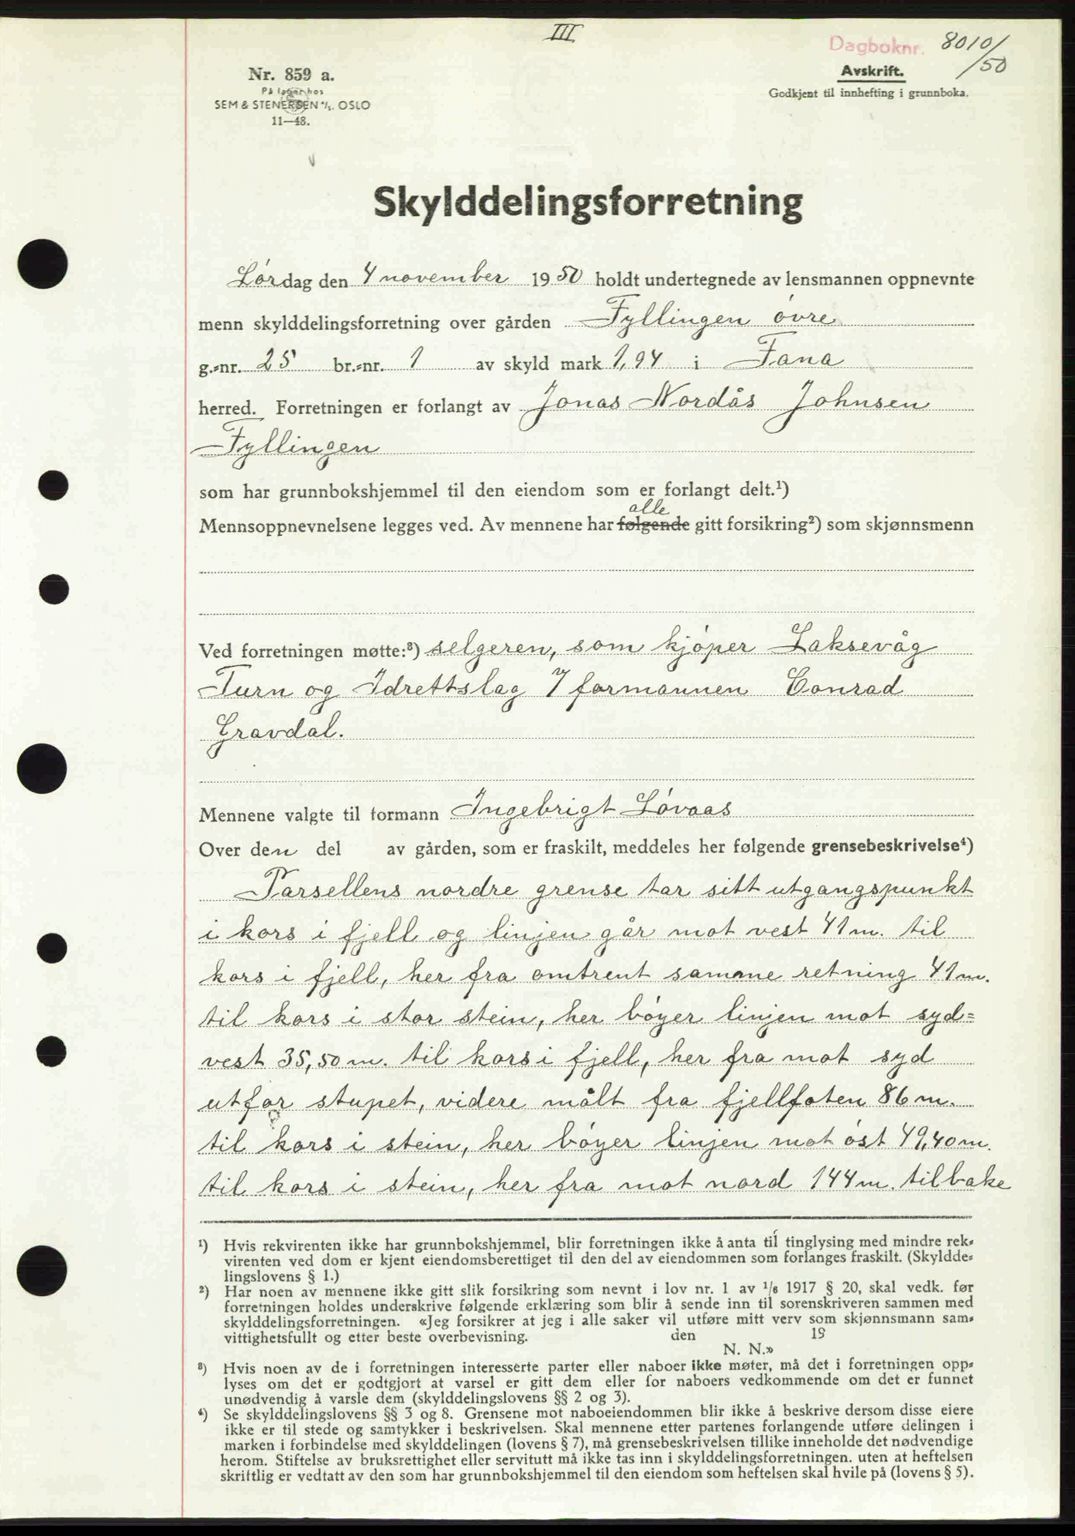 III
Dagboknr. 8010/50
Nr. 859 a.
Avskrift.
På lager hos
Godkjent til innhefting i grunnboka.
SEM & STENERSEN A/S. OSLO
11—48.
Skylddelingsforretning
Lørdag den 4 november 1950 holdt undertegnede av lensmannen oppnevnte
menn skylddelingsforretning over gården Fyllingen övre
g.-nr. 25 br.-nr. 1 av skyld mark 1,94 i Fana
herred. Forretningen er forlangt av Jonas Nordås Johnsen
Fyllingen
som har grunnbokshjemmel til den eiendom som er forlangt delt.¹)
alle
Mennsoppnevnelsene legges ved. Av mennene har følgende gitt forsikring²) som skjønnsmenn
Ved forretningen møtte:³) selgeren, som kjöper Laksevåg
Turn og Idrettslag v/ formannen Conrad
Gravdal.
Mennene valgte til formann Ingebrigt Lövaas
Over den del av gården, som er fraskilt, meddeles her følgende grensebeskrivelse⁴)
Parsellens nordre grense tar sitt utgangspunkt
i kors i fjell og linjen går mot vest 41 m. til
kors i fjell, her fra omtrent samme retning 41 m.
til kors i stor stein, her böyer linjen mot syd=
vest 35,50 m. til kors i fjell, her fra mot syd
utfor stupet, videre målt fra fjellfoten 86 m.
til kors i stein, her böyer linjen mot öst 49,40 m.
til kors i stein, her fra mot nord 144 m. tilbake
¹) Hvis rekvirenten ikke har grunnbokshjemmel, blir forretningen ikke å anta til tinglysing med mindre rek-
virenten ved dom er kjent eiendomsberettiget til den del av eiendommen som forlanges fraskilt. (Skyldde-
lingslovens § 1.)
²) Har noen av mennene ikke gitt slik forsikring som nevnt i lov nr. 1 av ¹/₈ 1917 § 20, skal vedk. før
forretningen holdes underskrive følgende erklæring som blir å sende inn til sorenskriveren sammen med
skylddelingsforretningen. «Jeg forsikrer at jeg i alle saker vil utføre mitt verv som skjønnsmann sam-
vittighetsfullt og etter beste overbevisning. den 19
N. N.»
³) Hvis noen av de i forretningen interesserte parter eller naboer ikke møter, må det i forretningen opp-
lyses om det er godtgjort at varsel er gitt dem eller for naboers vedkommende om det er funnet
unødvendig å varsle dem (skylddelingslovens §§ 2 og 3).
⁴) Se skylddelingslovens §§ 3 og 8. Grensene mot naboeiendommen blir ikke å beskrive dersom disse eiere
ikke er til stede og samtykker i beskrivelsen. Skal mennene etter partenes forlangende utføre delingen i
marken i forbindelse med skylddelingen (lovens § 7), må grensebeskrivelsen tillike inneholde det nødvendige
herom. Stiftelse av bruksrettighet eller servitutt må ikke tas inn i skylddelingsforretningen. uten at heftelsen
skriftlig er vedtatt av den som har grunnbokshjemmel til den eiendom som heftelsen skal hvile på (lovens § 5).